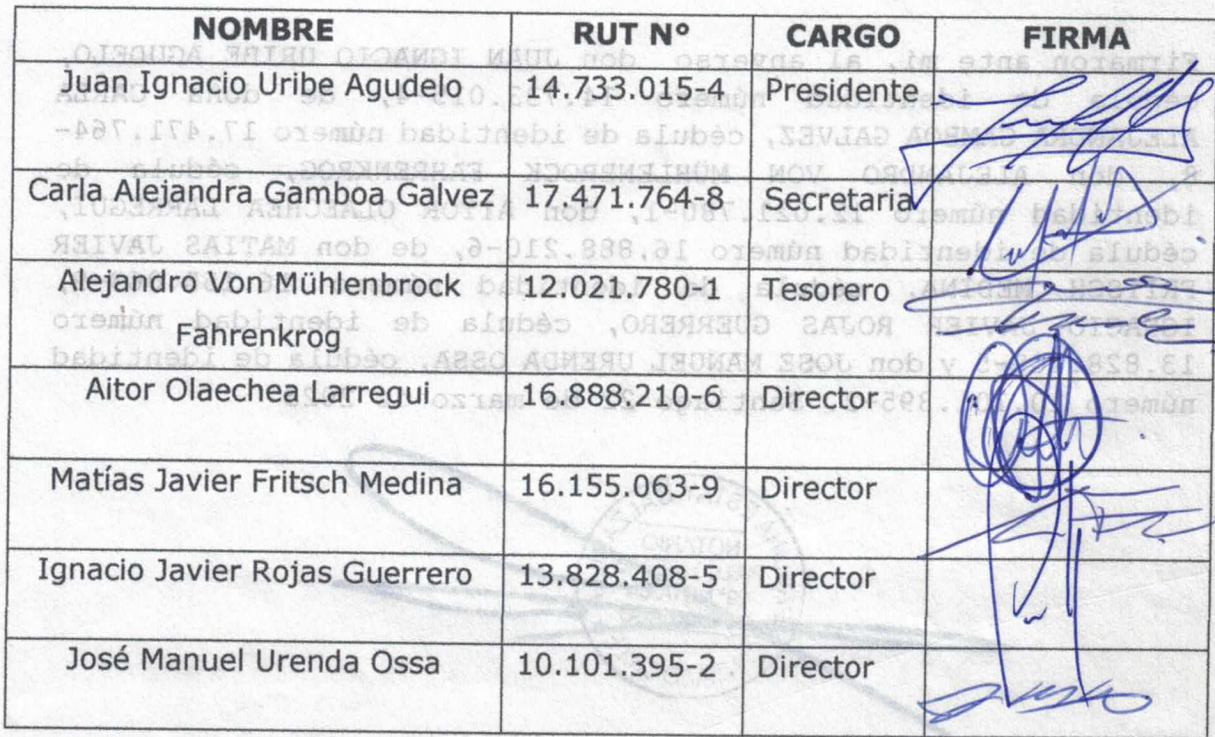 NOMBRE RUT N° CARGO FIRMA
Juan Ignacio Uribe Agudelo 14.733.015-4 Presidente
Carla Alejandra Gamboa Galvez 17.471.764-8 Secretaria
Alejandro Von Mühlenbrock 12.021.780-1 Tesorero
Fahrenkrog
Aitor Olaechea Larregui 16.888.210-6 Director
Matías Javier Fritsch Medina 16.155.063-9 Director
Ignacio Javier Rojas Guerrero 13.828.408-5 Director
José Manuel Urenda Ossa 10.101.395-2 Director